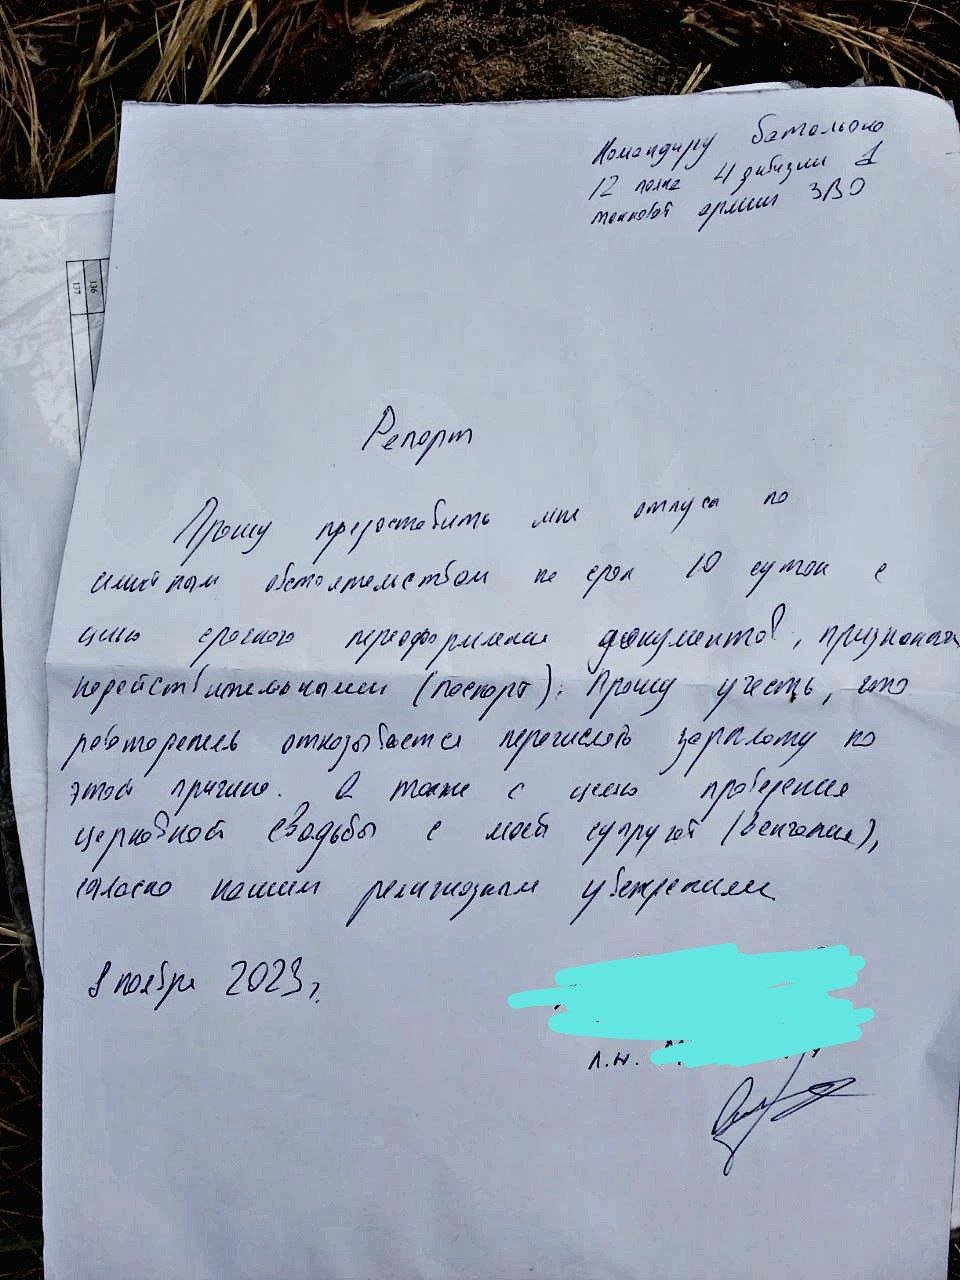 Командиру батальона
12 полка 4 дивизии 1
танковой армии ЗВО
Рапорт
Прошу предоставить мне отпуск по
личным обстоятельствам на срок 10 суток с
целью срочного переоформления документов, признанных
недействительными (паспорт). Прошу учесть, что
работодатель отказывается перечислять зарплату по
этой причине. А также с целью проведения
церковной свадьбы с моей супругой (венчания),
согласно нашим религиозным убеждениям
8 ноября 2023 г.
л.н.
136
137